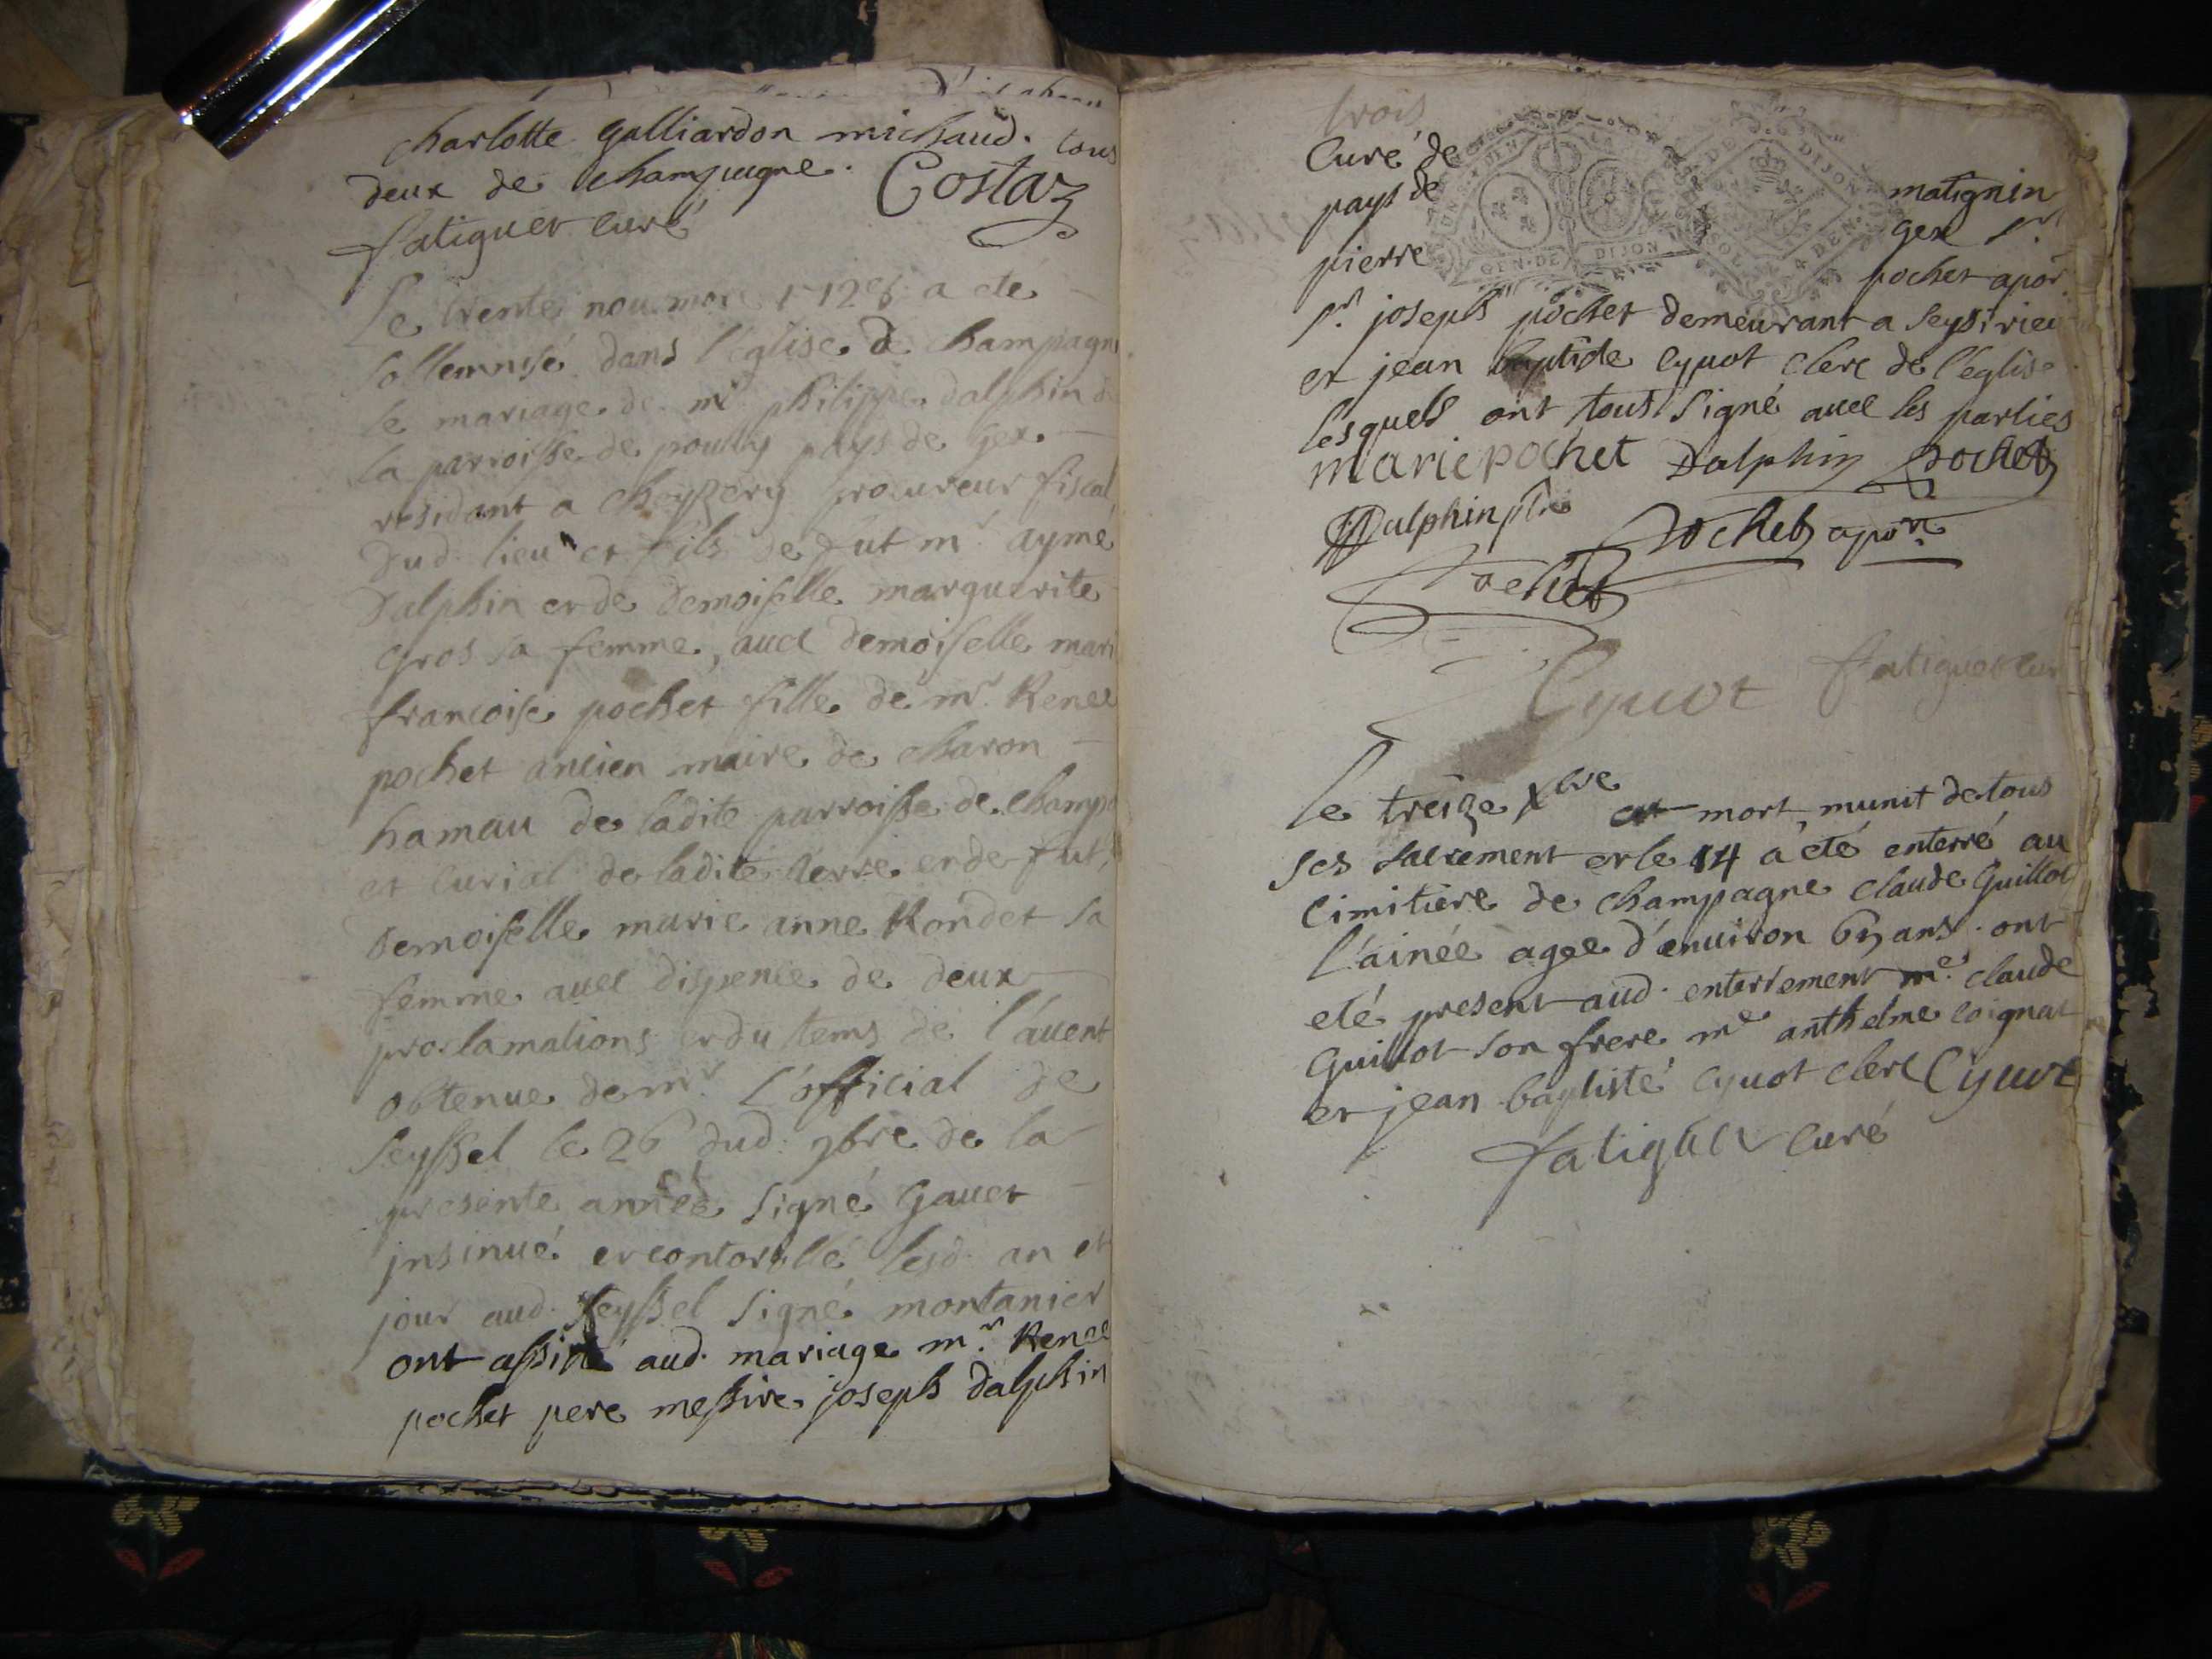 charlotte galliardon michaud. tous
deux de champagne. Costaz
fatiguet curé
Le trente
sollemnisé dans l'eglise de champagne
le mariage de mr philippe dalphin de
la parroisse de pouilly pays de Gex
residant a cheyzery procureur fiscal
dud. lieu et fils de fut mr. aymé
Dalphin et de demoiselle marguerite
gros sa femme, avec demoiselle mari
francoise pochet fille de mr. Renee
pochet ancien maire de charon
hamau de ladite parroisse de champa
et curial de ladite terre et de fut
demoiselle marie anne Rondet sa
femme avec dispence de deux
proclamations et du tems de l'avent
obtenue de mr. l'official de
Seyssel le 26 dud. 9bre de la
presente année signé Gavet
insinué et contorollé lesd. an et
jour aud. Seyssel signé montanier
ont assisté aud. mariage mr. Renee
pochet pere messire joseph dalphin
trois
Curé de matignin
pays de Gex sr.
pierre pochet apor.
GEN·DE DIJON
sr. joseph pochet demeurant a seysirieu
et jean baptiste cyuot clerc de l'eglise
lesquels ont tous signé avec les parties
marie pochet Dalphin pochet
Dalphin ptre
pochet apor.
pochet
Cyuot fatiguet cur
le treize Xbre est mort munit de tous
ses sacrement et le 14 a eté enterré au
cimitiere de champagne claude Guillot
l'ainée agee d'environ 65 ans. ont
eté present aud. enterrement me. claude
Guillot son frere me anthelme coignat
et jean baptiste cyuot clerc Cyuot
fatiguet curé